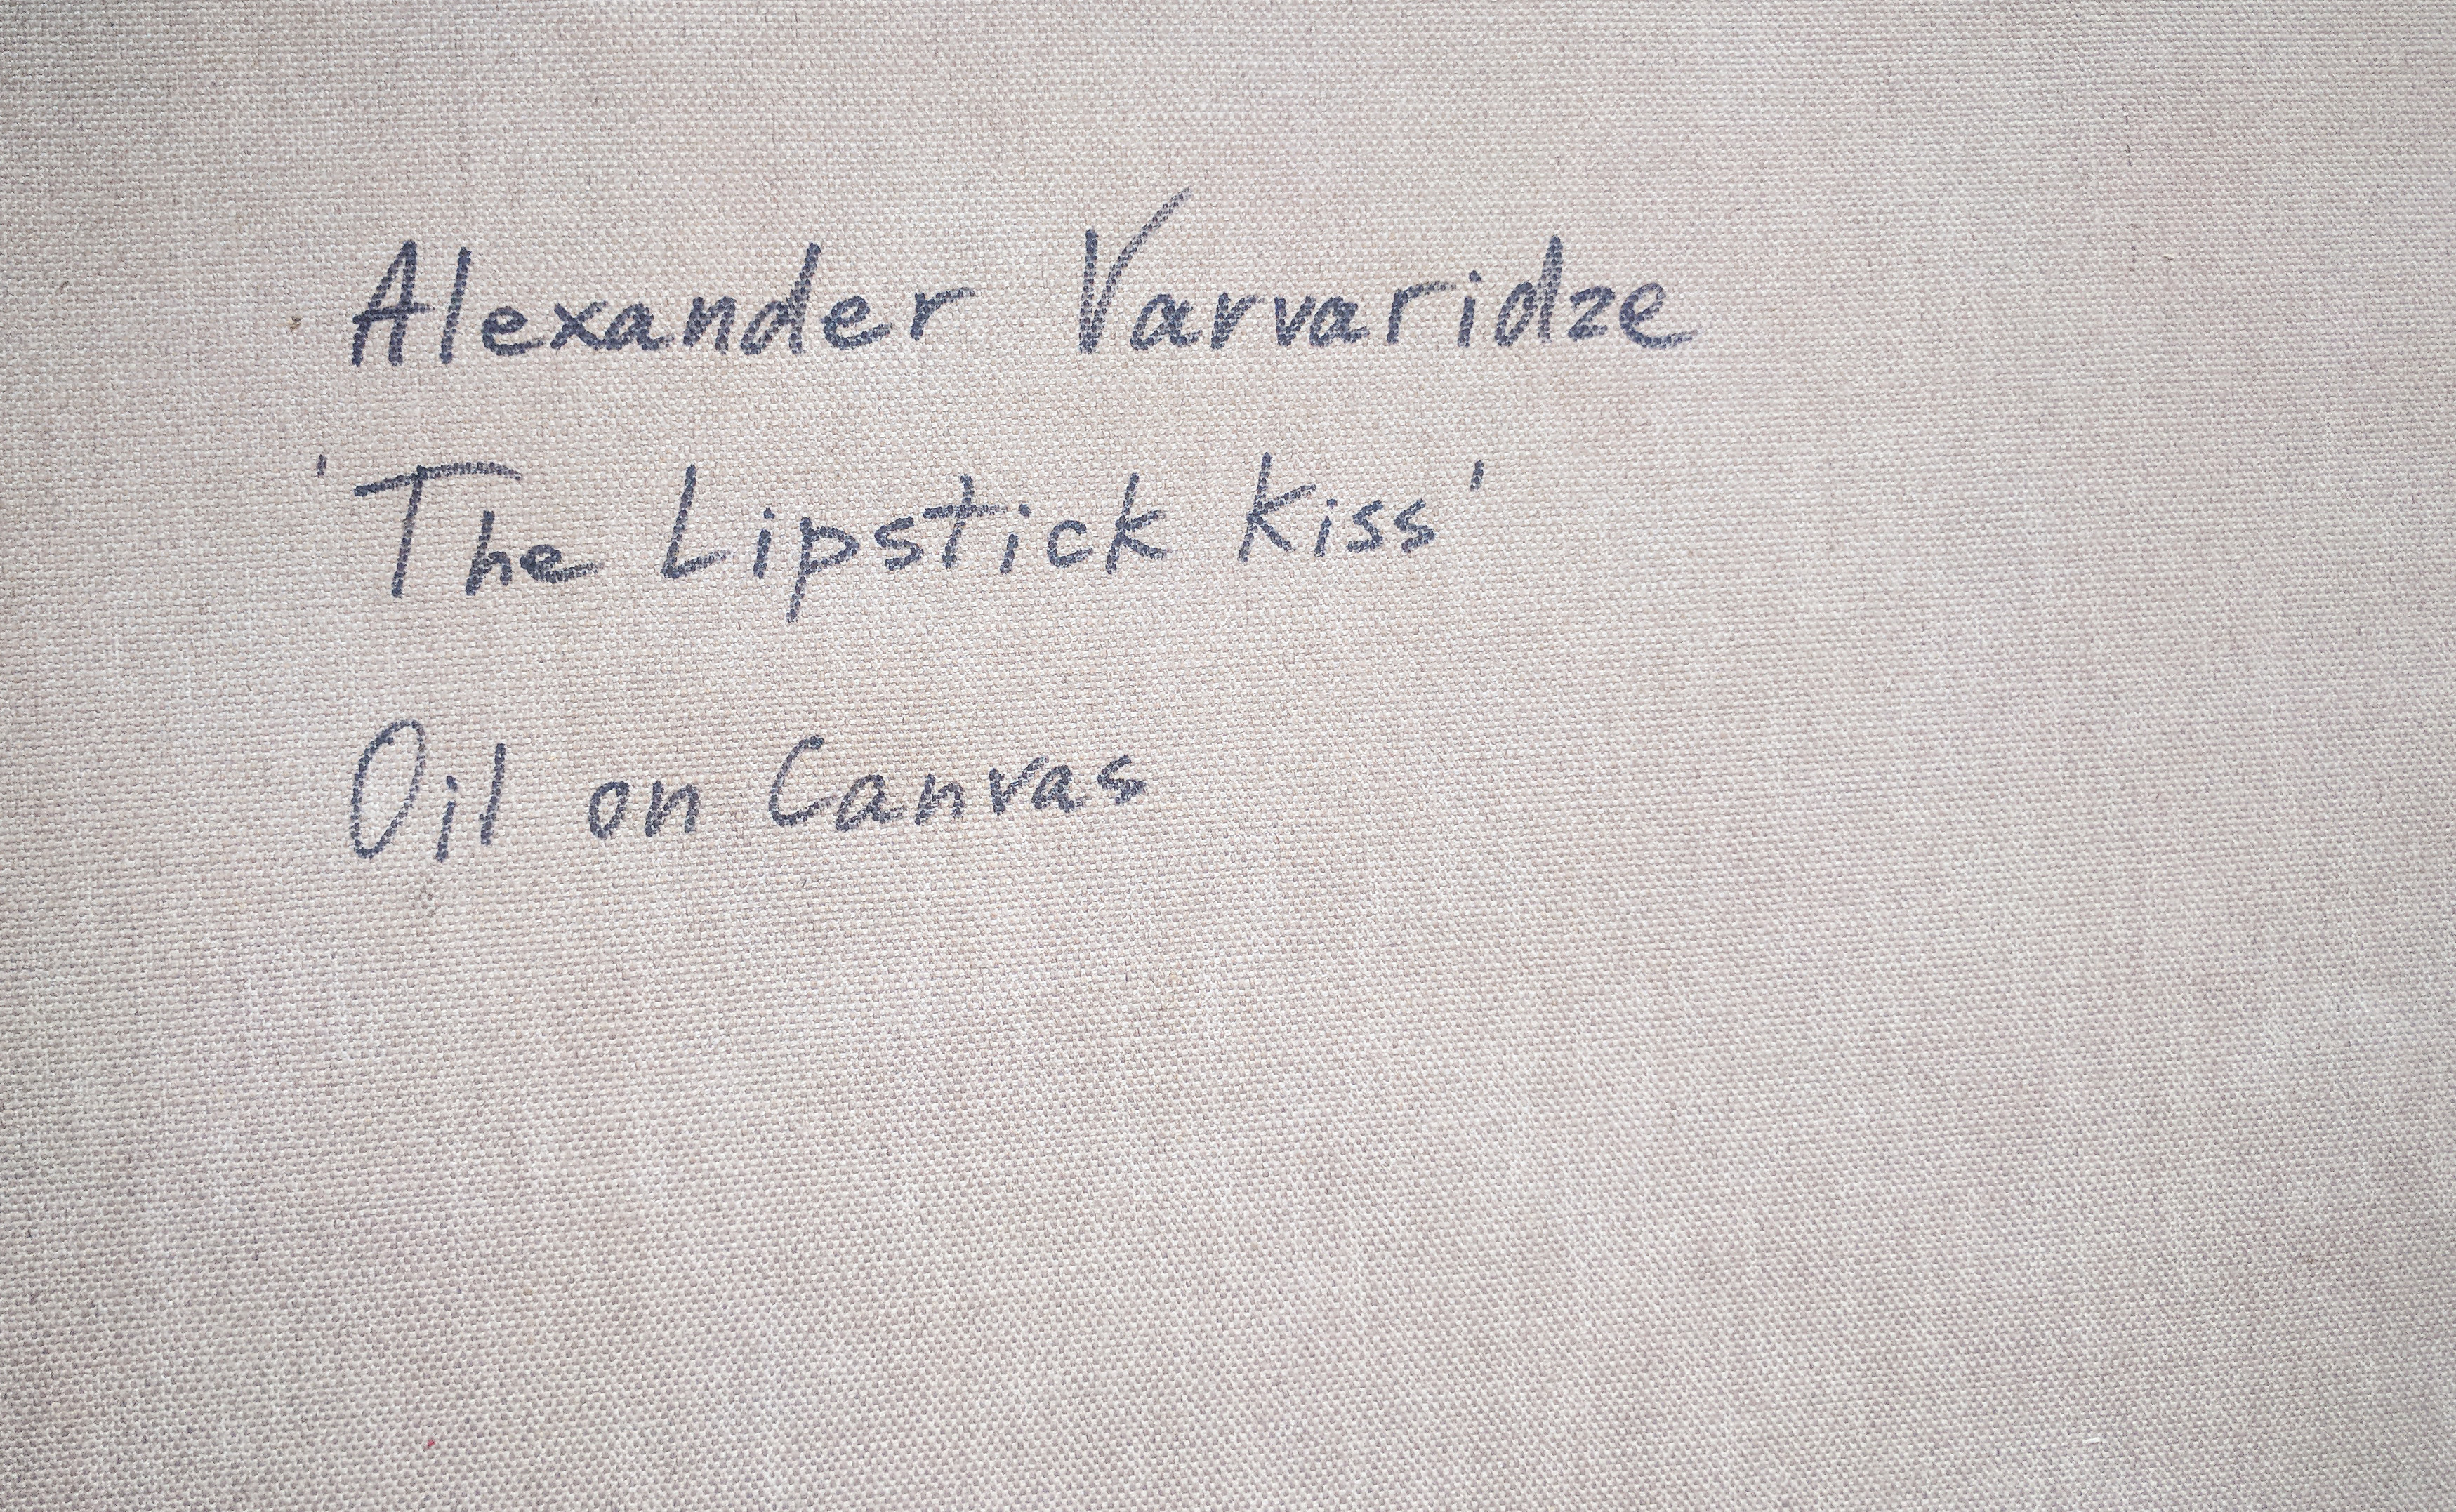 Alexander Varvaridze
'The Lipstick Kiss'
Oil on Canvas